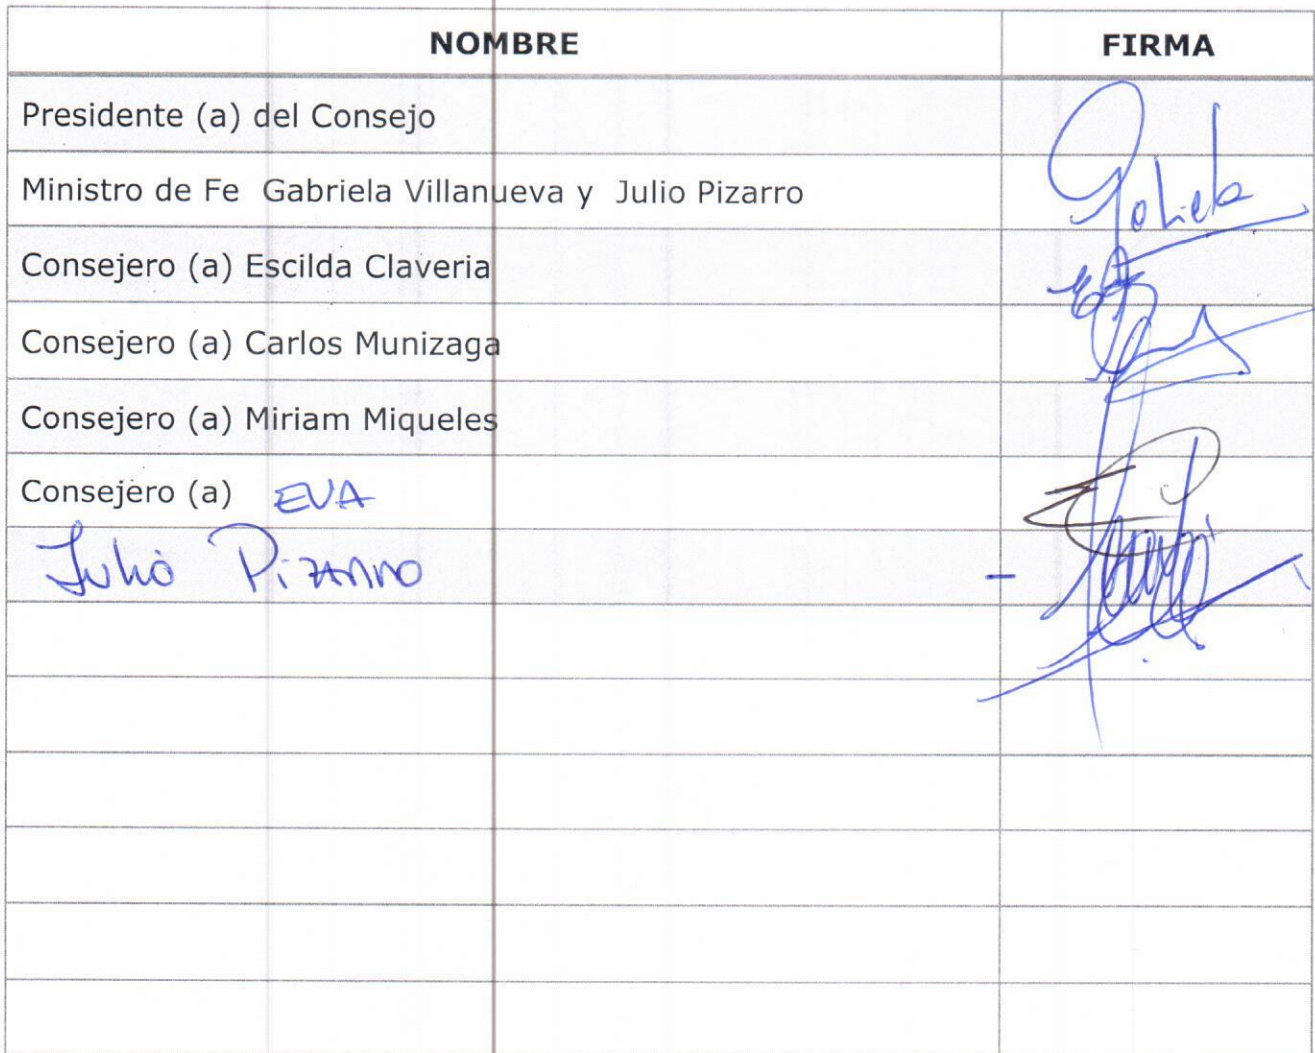 NOMBRE FIRMA
Presidente (a) del Consejo
Ministro de Fe Gabriela Villanueva y Julio Pizarro Gabriela
Consejero (a) Escilda Claveria
Consejero (a) Carlos Munizaga
Consejero (a) Miriam Miqueles
Consejero (a) EVA
Julio Pizarro